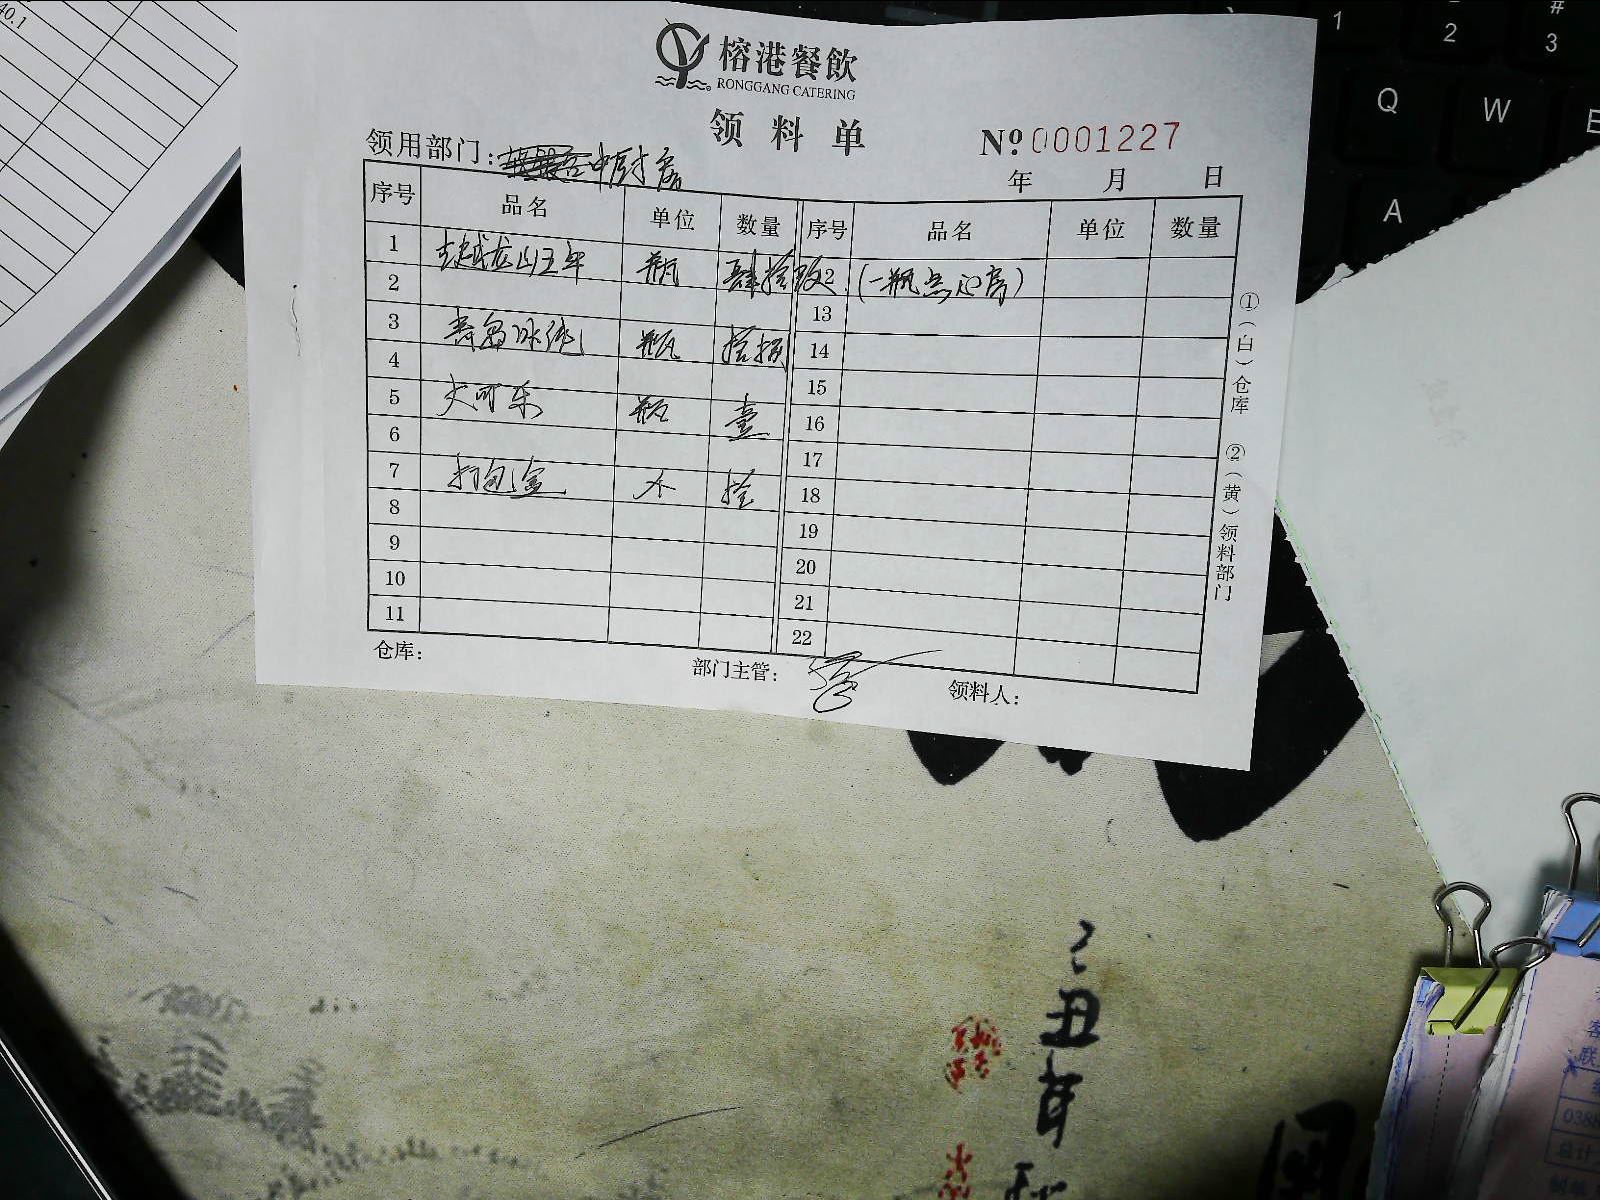 40.1
榕港餐飲
RONGGANG CATERING
领料单
№ 0001227
领用部门：中厨房
年 月 日
序号 品名 单位 数量 序号 品名 单位 数量
1 古越龙山五年 瓶 肆拾玖 (一瓶点心房)
2
3 青岛 瓶 拾
4
5 大可乐 瓶 壹
6
7 打包盒 个 拾
8
9
10
11
13
14
15
16
17
18
19
20
21
22
①(白)仓库 ②(黄)领料部门
仓库：
部门主管：
领料人：
1
2
#
3
Q
W
E
A
己丑年
0388
总计